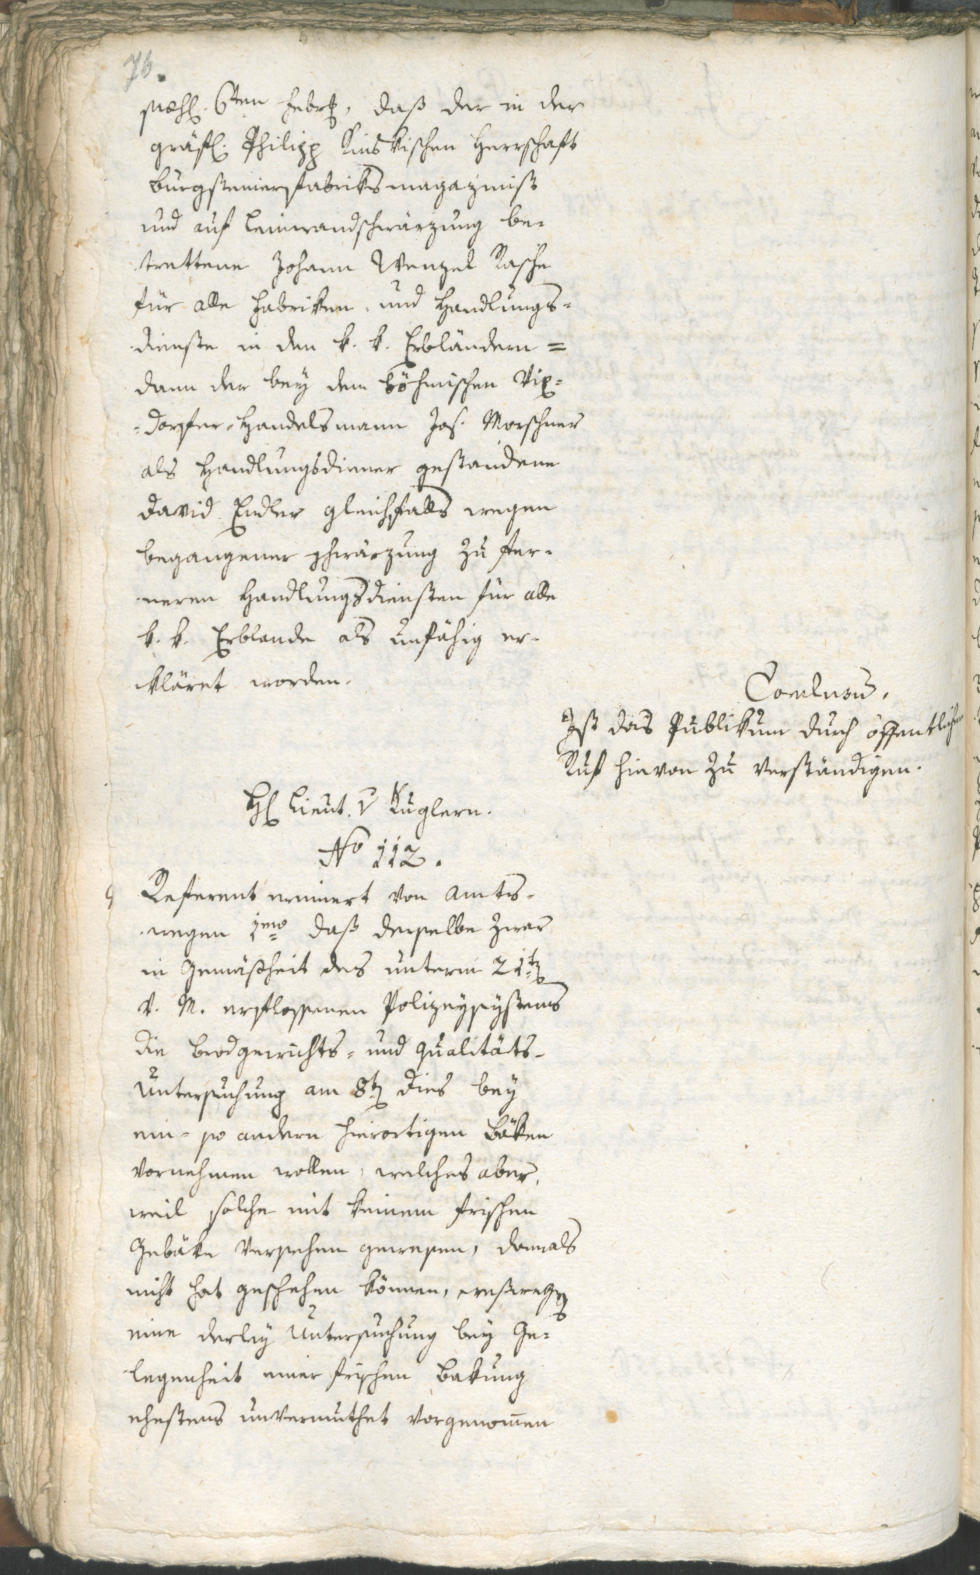 76.
præs. 6ten Febr., daß der in der
gräfl. Philipp Kinskischen Herrschaft
Bürgsteinerfabriksmagaziniß
und auf Leinwandschwärzung be-
trettene Johann Wenzel Rasche
für alle Fabriken- und Handlungs-
dienste in den k. k. Erbländern =
dann der bey dem böhmischen Nix-
dorfer-Handelsmann Jos. Morschner
als Handlungsdiener gestandene
David Endler gleichfalls wegen
begangener Schwärzung zu fer-
neren Handlungsdiensten für alle
k. k. Erblande als unfähig er-
kläret worden.
Conclusu.
Ist das Publikum durch öffentlichen
Ruf hievon zu verständigen.
H. Lieut. v Kuglern.
No 112.
Referent erinnert von Amts-
wegen 1mo daß derselbe zwar
in Gemäßheit des unterm 21t
v. M. erflossenen Polizeysystems
die Brodgewichts- und Qualitäts-
Untersuchung am 8t dies bey
ein- so andern hierortigen Bäken
vornehmen wollen, welches aber,
weil solche mit keinem frischen
Gebäke versehen gewesen, damals
nicht hat geschehen können, weßwegen
eine derley Untersuchung bey Ge-
legenheit einer frischen Bakung
ehestens unvermuthet vorgenomen